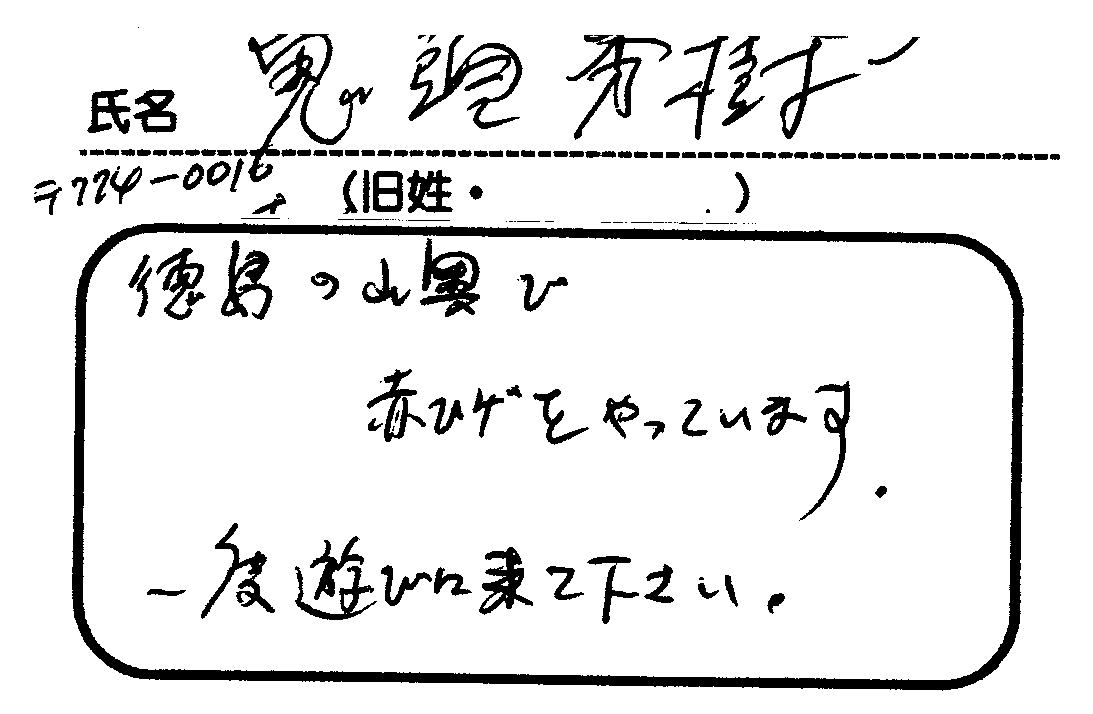 氏名 鬼頭秀樹
〒774-0016
(旧姓・ )
徳島の山奥で
赤ひげをやっています.
一度遊びに来て下さい.